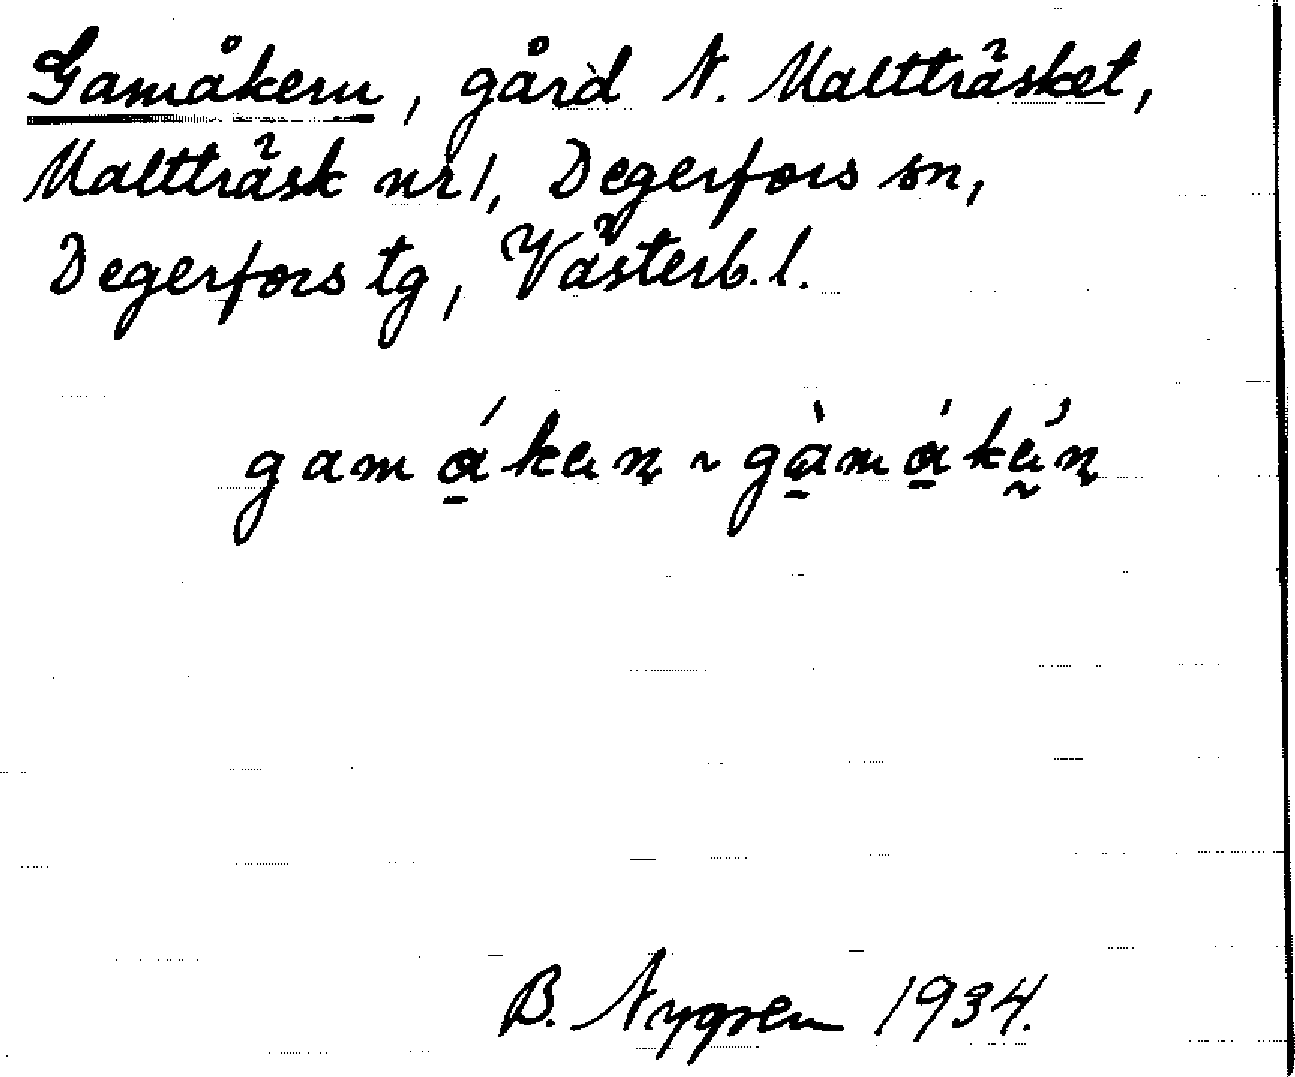 Gamåkern, gård N. Maltträsket,
Maltträsk nr 1, Degerfors sn,
Degerfors tg, Västerb. l.
B. Nygren 1934.